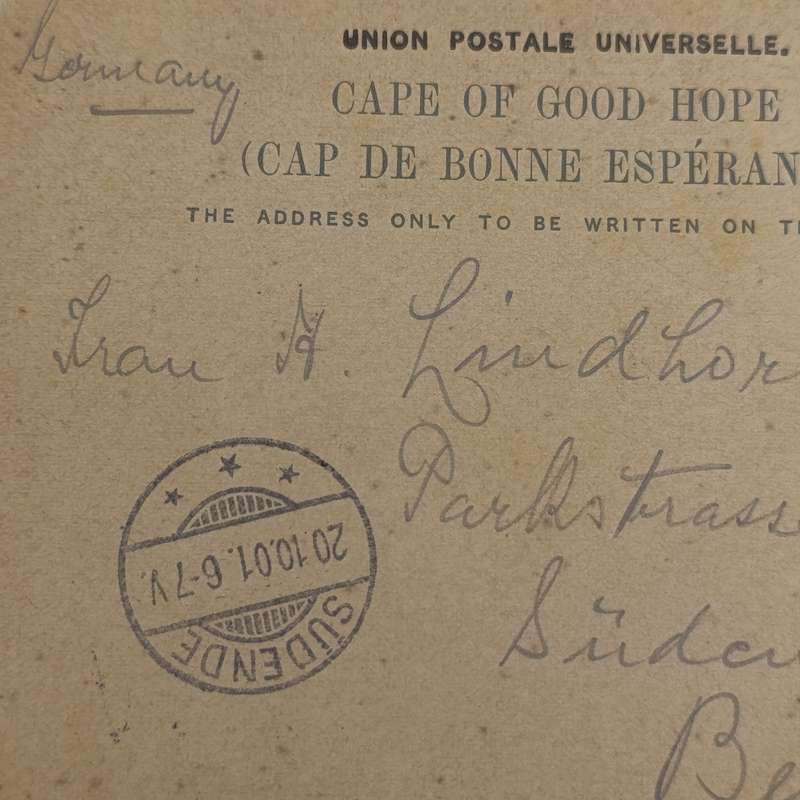 Germany
UNION POSTALE UNIVERSELLE.
CAPE OF GOOD HOPE
(CAP DE BONNE ESPÉRAN
THE ADDRESS ONLY TO BE WRITTEN ON TH
Frau A. Lindhor
Parkstrasse
Süden
Be
20.10.01. 6-7 V.
SÜDENDE